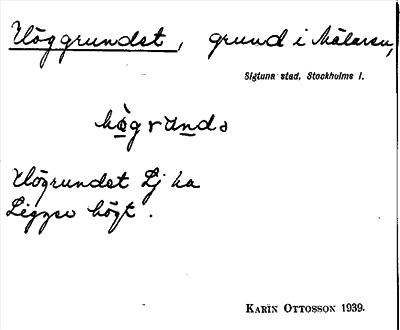 Höggrundet, grund i Mälaren,
Sigtuna stad, Stockholms l.
Högrundet Lj ha
högt.
KARIN OTTOSSON 1939.